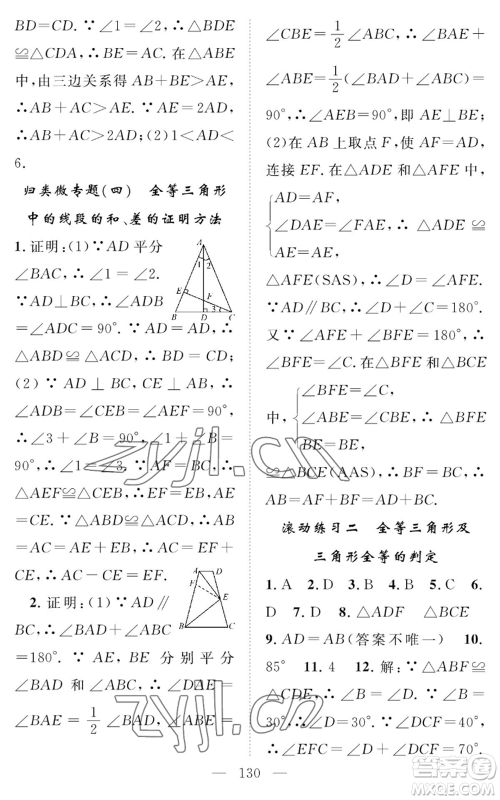 BD=CD. ∵∠1=∠2, ∴△BDE
≌△CDA, ∴BE=AC. 在△ABE
中, 由三边关系得 AB+BE>AE,
∴AB+AC>AE. ∵AE=2AD,
∴AB+AC>2AD; (2)1<AD<
6.
归类微专题(四) 全等三角形
中的线段的和、差的证明方法
1. 证明: (1)∵AD平分
∠BAC, ∴∠1=∠2.
∵AD⊥BC, ∴∠ADB
=∠ADC=90°. ∴
△ABD≌△ACD, ∴BD=CD;
(2)∵AD⊥BC, CE⊥AB, ∴
∠ADB=∠CEB=∠AEF=90°.
∴∠3+∠B=90°, ∠1+∠B=
90°, ∴∠1=∠3. ∵AF=CB, ∴
△AEF≌△CEB. ∴AE=CE, EF
=EB. ∴AC=AE+EB, ∴AC=
CE+EF.
2. 证明: (1)∵AD∥
BC, ∴∠BAD+∠ABC
=180°. ∵AE, BE 分别平分
∠BAD 和∠ABC, ∴∠DAE=
∠BAE=1/2∠BAD, ∠ABE=
∠CBE=1/2∠ABC, ∴∠BAE+
∠ABE=1/2(∠BAD+∠ABC)=
90°, ∴∠AEB=90°, 即AE⊥BE;
(2)在AB上取点F, 使AF=AD,
连接EF. 在△ADE和△AFE中,
AD=AF,
∠DAE=∠FAE, ∴△ADE≌
AE=AE,
△AFE(SAS), ∴∠D=∠AFE.
∵AD∥BC, ∴∠D+∠C=180°.
又∵∠AFE+∠BFE=180°, ∴
∠BFE=∠C. 在△BFE和△BCE
∠BFE=∠C,
中, ∠ABE=∠CBE, ∴△BFE
BE=BE,
≌△BCE(AAS), ∴BF=BC. ∴
AB=AF+BF=AD+BC.
滚动练习二 全等三角形及
三角形全等的判定
1. A 2. D 3. B 4. B 5. C 6. D
7. D 8. △ADF △BCE
9. AD=AB(答案不唯一) 10.
85° 11. 4 12. 解: ∵△ABF≌
△CDE, ∴∠D=∠B=30°. ∵
∠DCF=40°, ∴∠EFC=∠DCF
+∠D=70°.
130